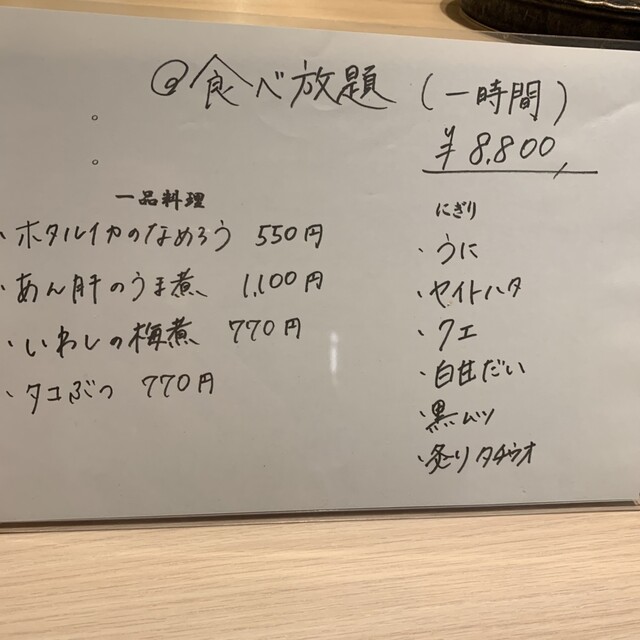 @食べ放題 (一時間)
¥8,800
一品料理
・ホタルイカのなめろう 550円
・あん肝のうま煮 1,100円
・いわしの梅煮 770円
・タコぶつ 770円
にぎり
・うに
・セイトハタ
・クエ
・白甘だい
・黒ムツ
・炙りタチウオ